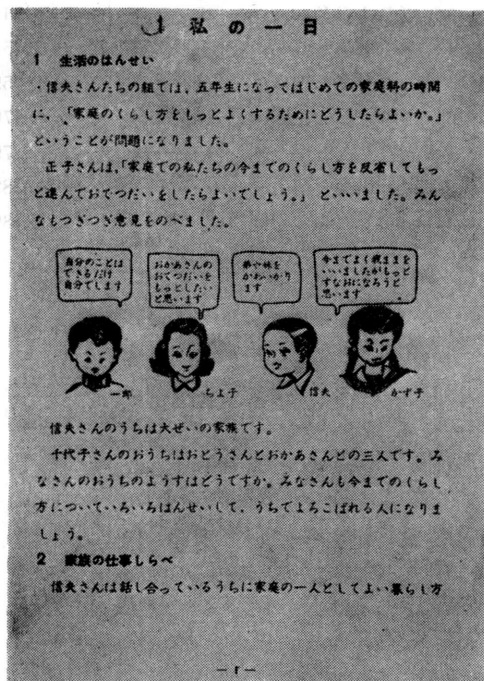 私の一日
1 生活のはんせい
・信夫さんたちの組では、五年生になってはじめての家庭科の時間
に、「家庭のくらし方をもっとよくするためにどうしたらよいか。」
ということが問題になりました。
正子さんは、「家庭での私たちの今までのくらし方を反省してもっ
と進んでおてつだいをしたらよいでしょう。」といいました。みん
なもつぎつぎ意見をのべました。
自分のことは
できるだけ
自分でします
おかあさんの
おてつだいを
もっとしたい
と思います
弟や妹を
かわいがり
ます
今までよく我ままを
いいましたがもっと
すなおになろうと
思います
一郎
ちよ子
信夫
かず子
信夫さんのうちは大ぜいの家族です。
千代子さんのおうちはおとうさんとおかあさんとの三人です。み
なさんのおうちのようすはどうですか。みなさんも今までのくらし
方についていろいろはんせいして、うちでよろこばれる人になりま
しょう。
2 家族の仕事しらべ
信夫さんは話し合っているうちに家庭の一人としてよい暮らし方